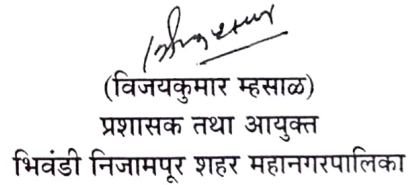 (विजयकुमार म्हसाळ)
प्रशासक तथा आयुक्त
भिवंडी निजामपूर शहर महानगरपालिका